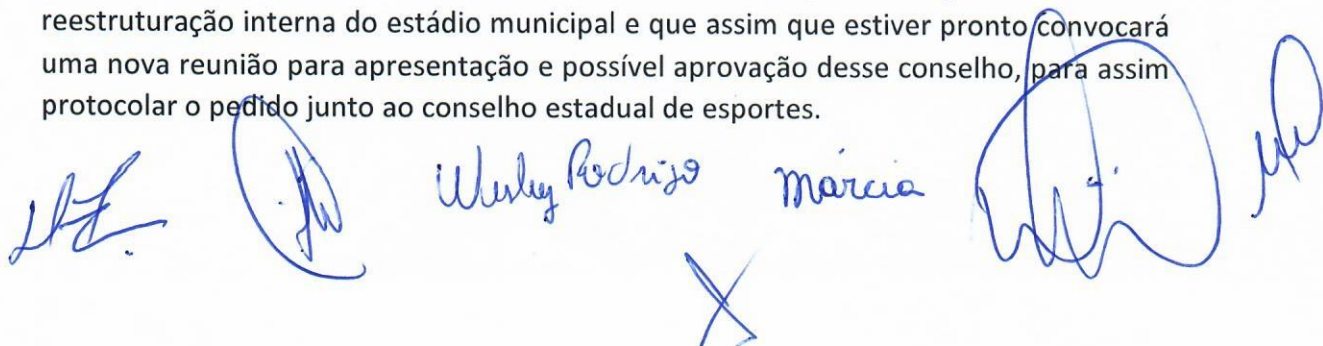 reestruturação interna do estádio municipal e que assim que estiver pronto convocará
uma nova reunião para apresentação e possível aprovação desse conselho, para assim
protocolar o pedido junto ao conselho estadual de esportes.
Wesley Rodrigo Márcia